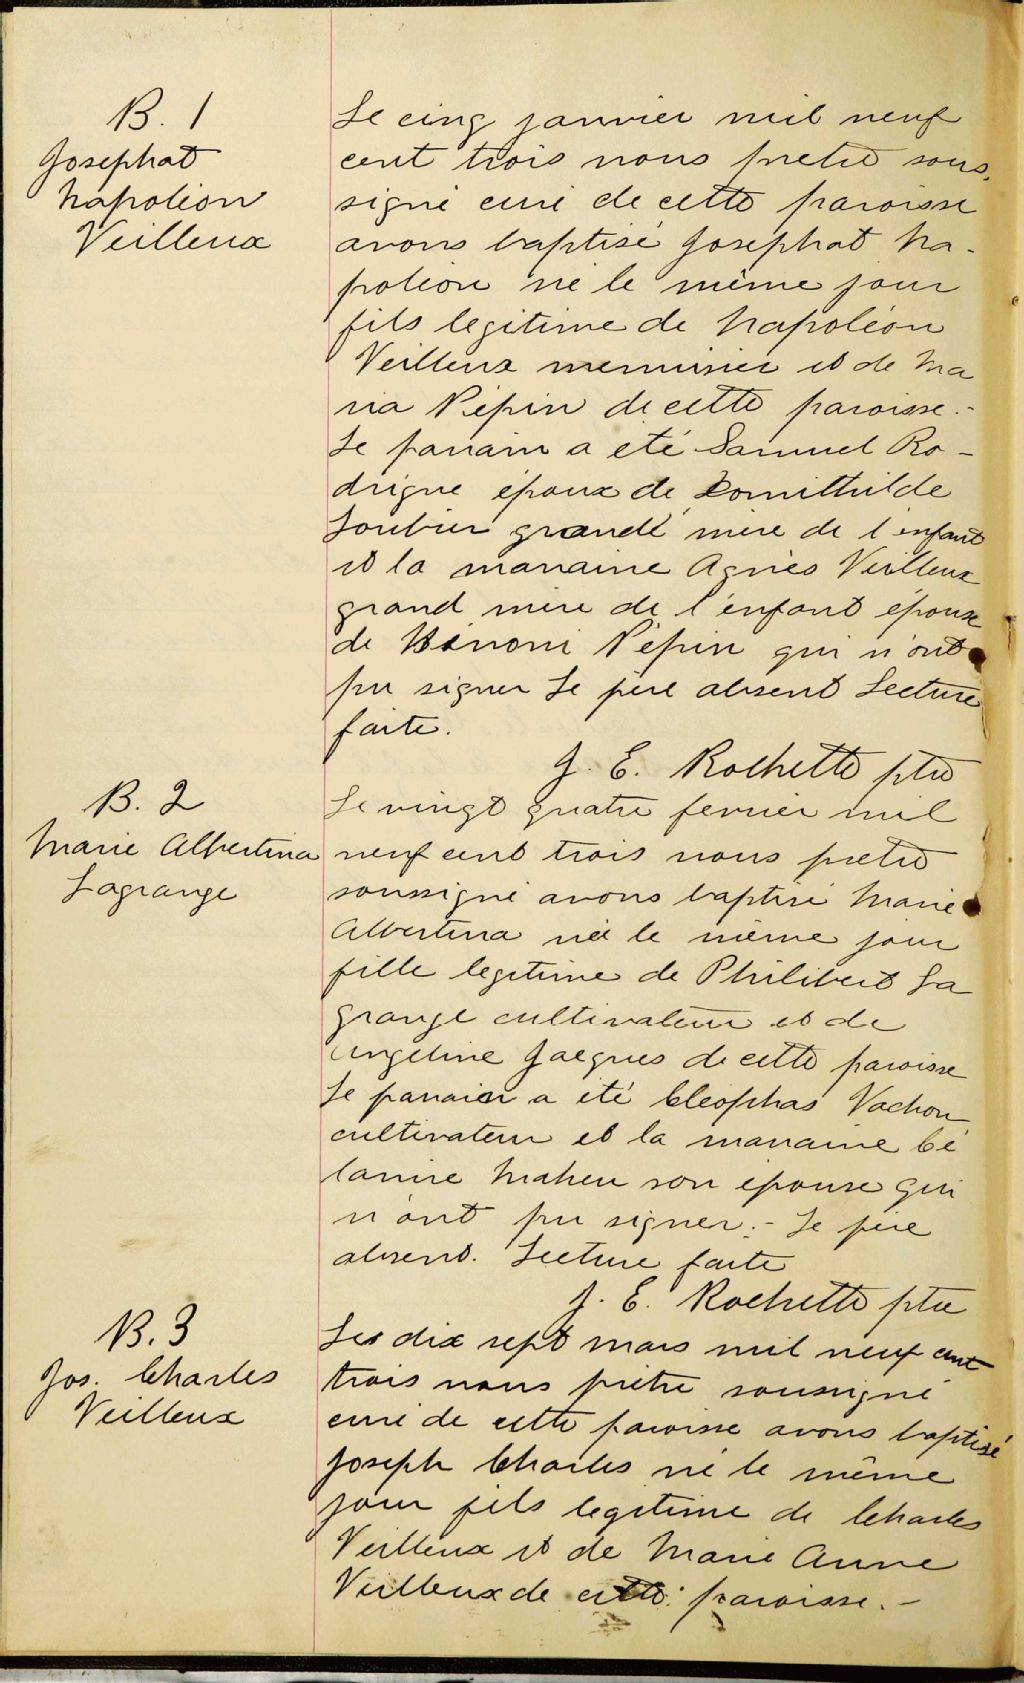 B. 1
Josephat
Napoléon
Veilleux
Le cinq janvier mil neuf
cent trois nous prêtre sous-
signé curé de cette paroisse
avons baptisé Josephat Na-
poléon né le même jour
fils legitime de Napoléon
Veilleux menuisier et de Ma
ria Pépin de cette paroisse.-
Le parrain a été Samuel Ro-
drigue époux de
Loubier grande mère de l'enfant
et la marraine Agnès Veilleux
grand mère de l'enfant épouse
de Bénoni Pépin qui n'ont
pu signer Le père absent Lecture
faite.
J. E. Rochette ptre
B. 2
Marie Albertina
Lagrange
Le vingt quatre fevrier mil
neuf cent trois nous pretre
soussigné avons baptisé Marie
Albertina née le même jour
fille legitime de Philibert La
grange cultivateur et de
Angeline Jacques de cette paroisse
Le parrain a été Cléophas Vachon
cultivateur et la marraine Cé
lanire Maheu son épouse qui
n'ont pu signer.- Le père
absent. Lecture faite
J. E. Rochette ptre
B. 3
Jos. Charles
Veilleux
Le dix sept mars mil neuf cent
trois nous prêtre soussigné
curé de cette paroisse avons baptisé
Joseph Charles né le même
jour fils legitime de Charles
Veilleux et de Marie Anne
Veilleux de cette paroisse.-